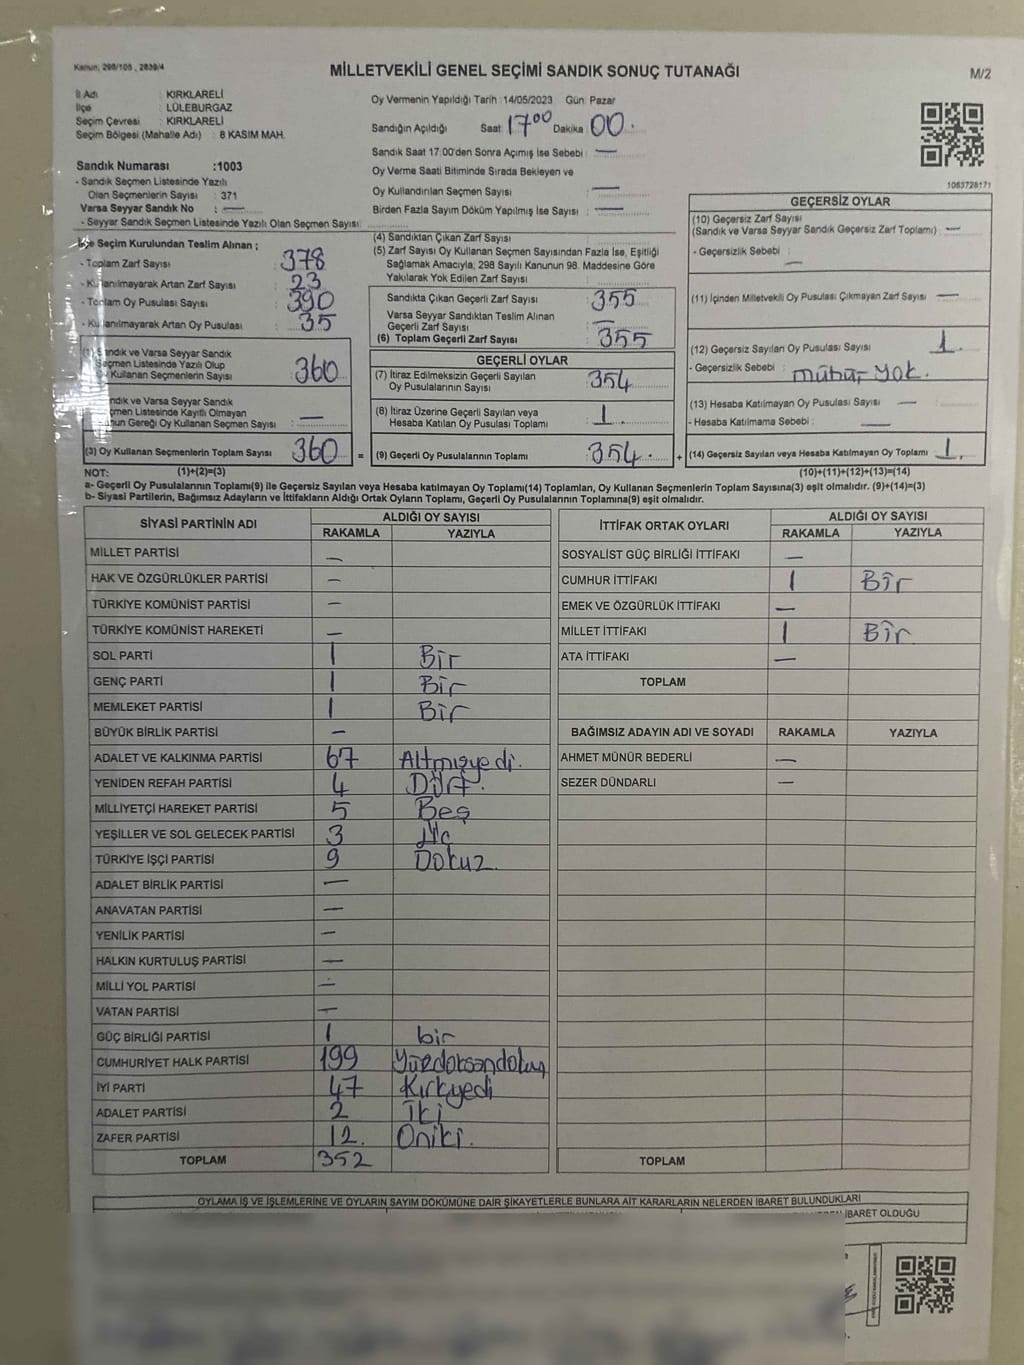 Kanun: 298/105 , 2839/4
MİLLETVEKİLİ GENEL SEÇİMİ SANDIK SONUÇ TUTANAĞI
M/2
İl Adı : KIRKLARELİ
İlçe : LÜLEBURGAZ
Seçim Çevresi : KIRKLARELİ
Seçim Bölgesi (Mahalle Adı) : 8 KASIM MAH.
Oy Vermenin Yapıldığı Tarih : 14/05/2023 Gün: Pazar
Sandığın Açıldığı Saat 17⁰⁰ Dakika 00.
Sandık Saat 17:00'den Sonra Açımış İse Sebebi : —
Oy Verme Saati Bitiminde Sırada Bekleyen ve
Oy Kullandırılan Seçmen Sayısı : —
Birden Fazla Sayım Döküm Yapılmış İse Sayısı : —
1083728171
Sandık Numarası :1003
- Sandık Seçmen Listesinde Yazılı
Olan Seçmenlerin Sayısı : 371
Varsa Seyyar Sandık No : —
- Seyyar Sandık Seçmen Listesinde Yazılı Olan Seçmen Sayısı:
Seçim Kurulundan Teslim Alınan ;
- Toplam Zarf Sayısı : 378
- Kullanılmayarak Artan Zarf Sayısı : 23
- Toplam Oy Pusulası Sayısı : 390
- Kullanılmayarak Artan Oy Pusulası : 35
(1) Sandık ve Varsa Seyyar Sandık
Seçmen Listesinde Yazılı Olup
Oy Kullanan Seçmenlerin Sayısı : 360
Sandık ve Varsa Seyyar Sandık
Seçmen Listesinde Kayıtlı Olmayan
Kanun Gereği Oy Kullanan Seçmen Sayısı : —
(3) Oy Kullanan Seçmenlerin Toplam Sayısı : 360 =
(4) Sandıktan Çıkan Zarf Sayısı :
(5) Zarf Sayısı Oy Kullanan Seçmen Sayısından Fazla İse, Eşitliği
Sağlamak Amacıyla; 298 Sayılı Kanunun 98. Maddesine Göre
Yakılarak Yok Edilen Zarf Sayısı :
Sandıkta Çıkan Geçerli Zarf Sayısı : 355
Varsa Seyyar Sandıktan Teslim Alınan
Geçerli Zarf Sayısı : —
(6) Toplam Geçerli Zarf Sayısı : 355
GEÇERLİ OYLAR
(7) İtiraz Edilmeksizin Geçerli Sayılan
Oy Pusulalarının Sayısı : 354
(8) İtiraz Üzerine Geçerli Sayılan veya
Hesaba Katılan Oy Pusulası Toplamı : 1.
(9) Geçerli Oy Pusulalarının Toplamı : 354. +
GEÇERSİZ OYLAR
(10) Geçersiz Zarf Sayısı
(Sandık ve Varsa Seyyar Sandık Geçersiz Zarf Toplamı) : —
- Geçersizlik Sebebi : —
(11) İçinden Milletvekili Oy Pusulası Çıkmayan Zarf Sayısı : —
(12) Geçersiz Sayılan Oy Pusulası Sayısı : 1.
- Geçersizlik Sebebi : mühür yok.
(13) Hesaba Katılmayan Oy Pusulası Sayısı : —
- Hesaba Katılmama Sebebi : —
(14) Geçersiz Sayılan veya Hesaba Katılmayan Oy Toplamı : 1.
NOT: (1)+(2)=(3) (10)+(11)+(12)+(13)=(14)
a- Geçerli Oy Pusulalarının Toplamı(9) ile Geçersiz Sayılan veya Hesaba katılmayan Oy Toplamı(14) Toplamları, Oy Kullanan Seçmenlerin Toplam Sayısına(3) eşit olmalıdır. (9)+(14)=(3)
b- Siyasi Partilerin, Bağımsız Adayların ve İttifakların Aldığı Ortak Oyların Toplamı, Geçerli Oy Pusulalarının Toplamına(9) eşit olmalıdır.
SİYASİ PARTİNİN ADI ALDIĞI OY SAYISI
RAKAMLA YAZIYLA
MİLLET PARTİSİ —
HAK VE ÖZGÜRLÜKLER PARTİSİ —
TÜRKİYE KOMÜNİST PARTİSİ —
TÜRKİYE KOMÜNİST HAREKETİ —
SOL PARTİ 1 Bir
GENÇ PARTİ 1 Bir
MEMLEKET PARTİSİ 1 Bir
BÜYÜK BİRLİK PARTİSİ —
ADALET VE KALKINMA PARTİSİ 67 Altmışyedi.
YENİDEN REFAH PARTİSİ 4 Dört.
MİLLİYETÇİ HAREKET PARTİSİ 5 Beş
YEŞİLLER VE SOL GELECEK PARTİSİ 3 Üç
TÜRKİYE İŞÇİ PARTİSİ 9 Dokuz.
ADALET BİRLİK PARTİSİ —
ANAVATAN PARTİSİ —
YENİLİK PARTİSİ —
HALKIN KURTULUŞ PARTİSİ —
MİLLİ YOL PARTİSİ —
VATAN PARTİSİ —
GÜÇ BİRLİĞİ PARTİSİ 1 bir
CUMHURİYET HALK PARTİSİ 199 Yüzdoksandokuz
İYİ PARTİ 47 Kırkyedi
ADALET PARTİSİ 2 İki
ZAFER PARTİSİ 12. Oniki.
TOPLAM 352
İTTİFAK ORTAK OYLARI ALDIĞI OY SAYISI
RAKAMLA YAZIYLA
SOSYALİST GÜÇ BİRLİĞİ İTTİFAKI —
CUMHUR İTTİFAKI 1 Bir
EMEK VE ÖZGÜRLÜK İTTİFAKI —
MİLLET İTTİFAKI 1 Bir
ATA İTTİFAKI —
TOPLAM
BAĞIMSIZ ADAYIN ADI VE SOYADI RAKAMLA YAZIYLA
AHMET MÜNÜR BEDERLİ —
SEZER DÜNDARLI —
TOPLAM
OYLAMA İŞ VE İŞLEMLERİNE VE OYLARIN SAYIM DÖKÜMÜNE DAİR ŞİKAYETLERLE BUNLARA AİT KARARLARIN NELERDEN İBARET BULUNDUKLARI
İBARET OLDUĞU